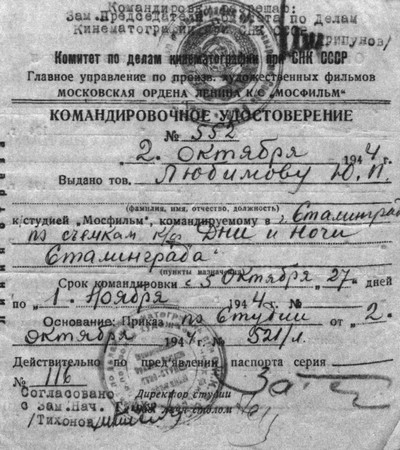 Командировку разрешаю:
Зам.Председателя Комитета по Делам
Кинематографии при СНК СССР
Комитет по делам кинематографии при СНК СССР
Главное управление по произв. художественных фильмов
МОСКОВСКАЯ ОРДЕНА ЛЕНИНА К.С „МОСФИЛЬМ“
КОМАНДИРОВОЧНОЕ УДОСТОВЕРЕНИЕ
№ 552
2. октября 1944г.
Выдано тов. Любимову Ю.П.
(фамилия, имя, отчество, должность)
к студией „Мосфильм“, командируемому в г. Сталинград
по съемкам к/ф Дни и Ночи
Сталинграда“
(пункты назначения)
Срок командировки с 5 октября „27“ дней
по „1. Ноября 1944г. №
Основание: Приказ по студии от „2.
октября 1944г. № 521/л.
Действительно по предъявлении паспорта серия
№ 116
Директор студии
Согласовано
с Зам.Нач.
/Тихонов/
линия отреза